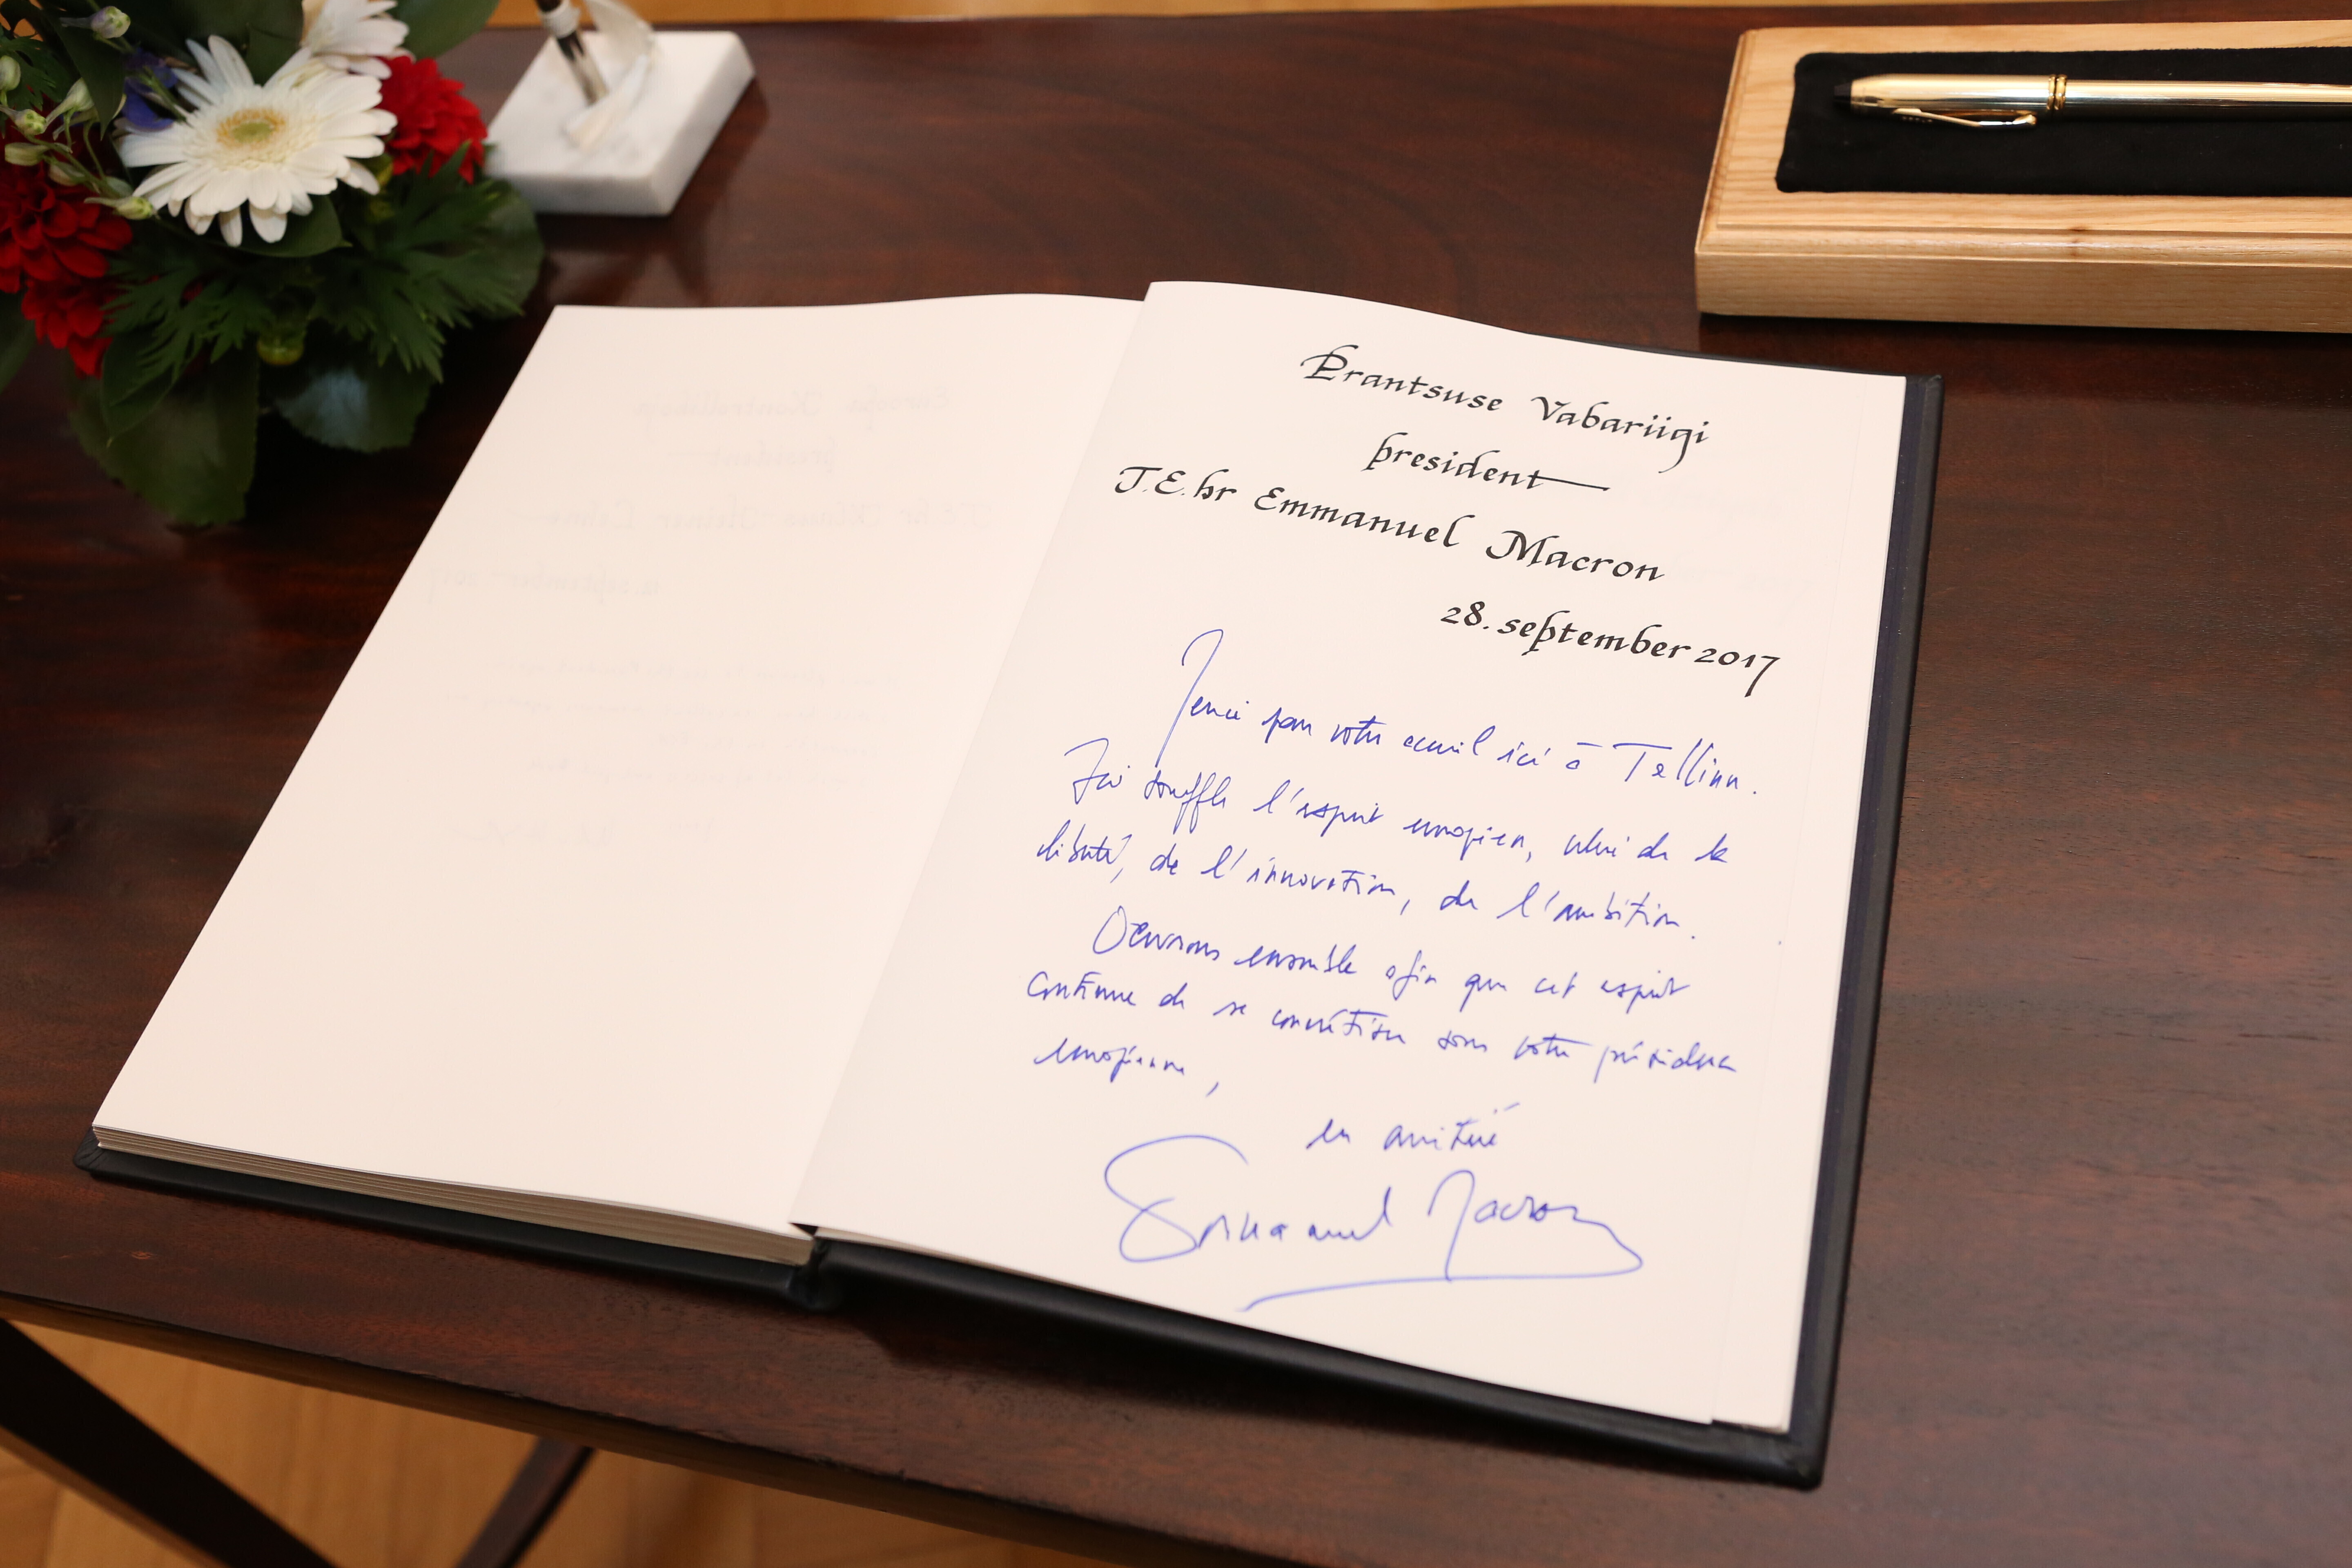 Prantsuse Vabariigi
president
T.E. hr Emmanuel Macron
28. september 2017
Merci pour votre accueil ici à Tallinn.
Ici souffle l'esprit européen, celui de la
liberté, de l'innovation, de l'ambition.
Oeuvrons ensemble afin que cet esprit
continue de se concrétiser sous votre présidence
européenne,
en amitié
Emmanuel Macron